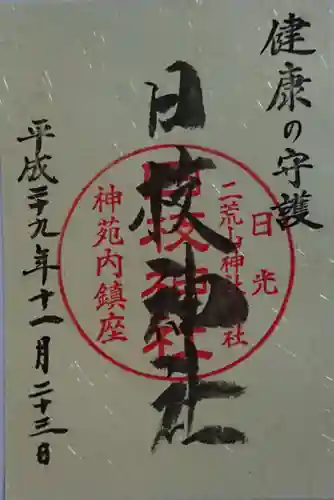 健康の守護
日枝神社
日光
二荒山神社
社
日枝神社
神苑内鎮座
平成二十九年十一月二十三日